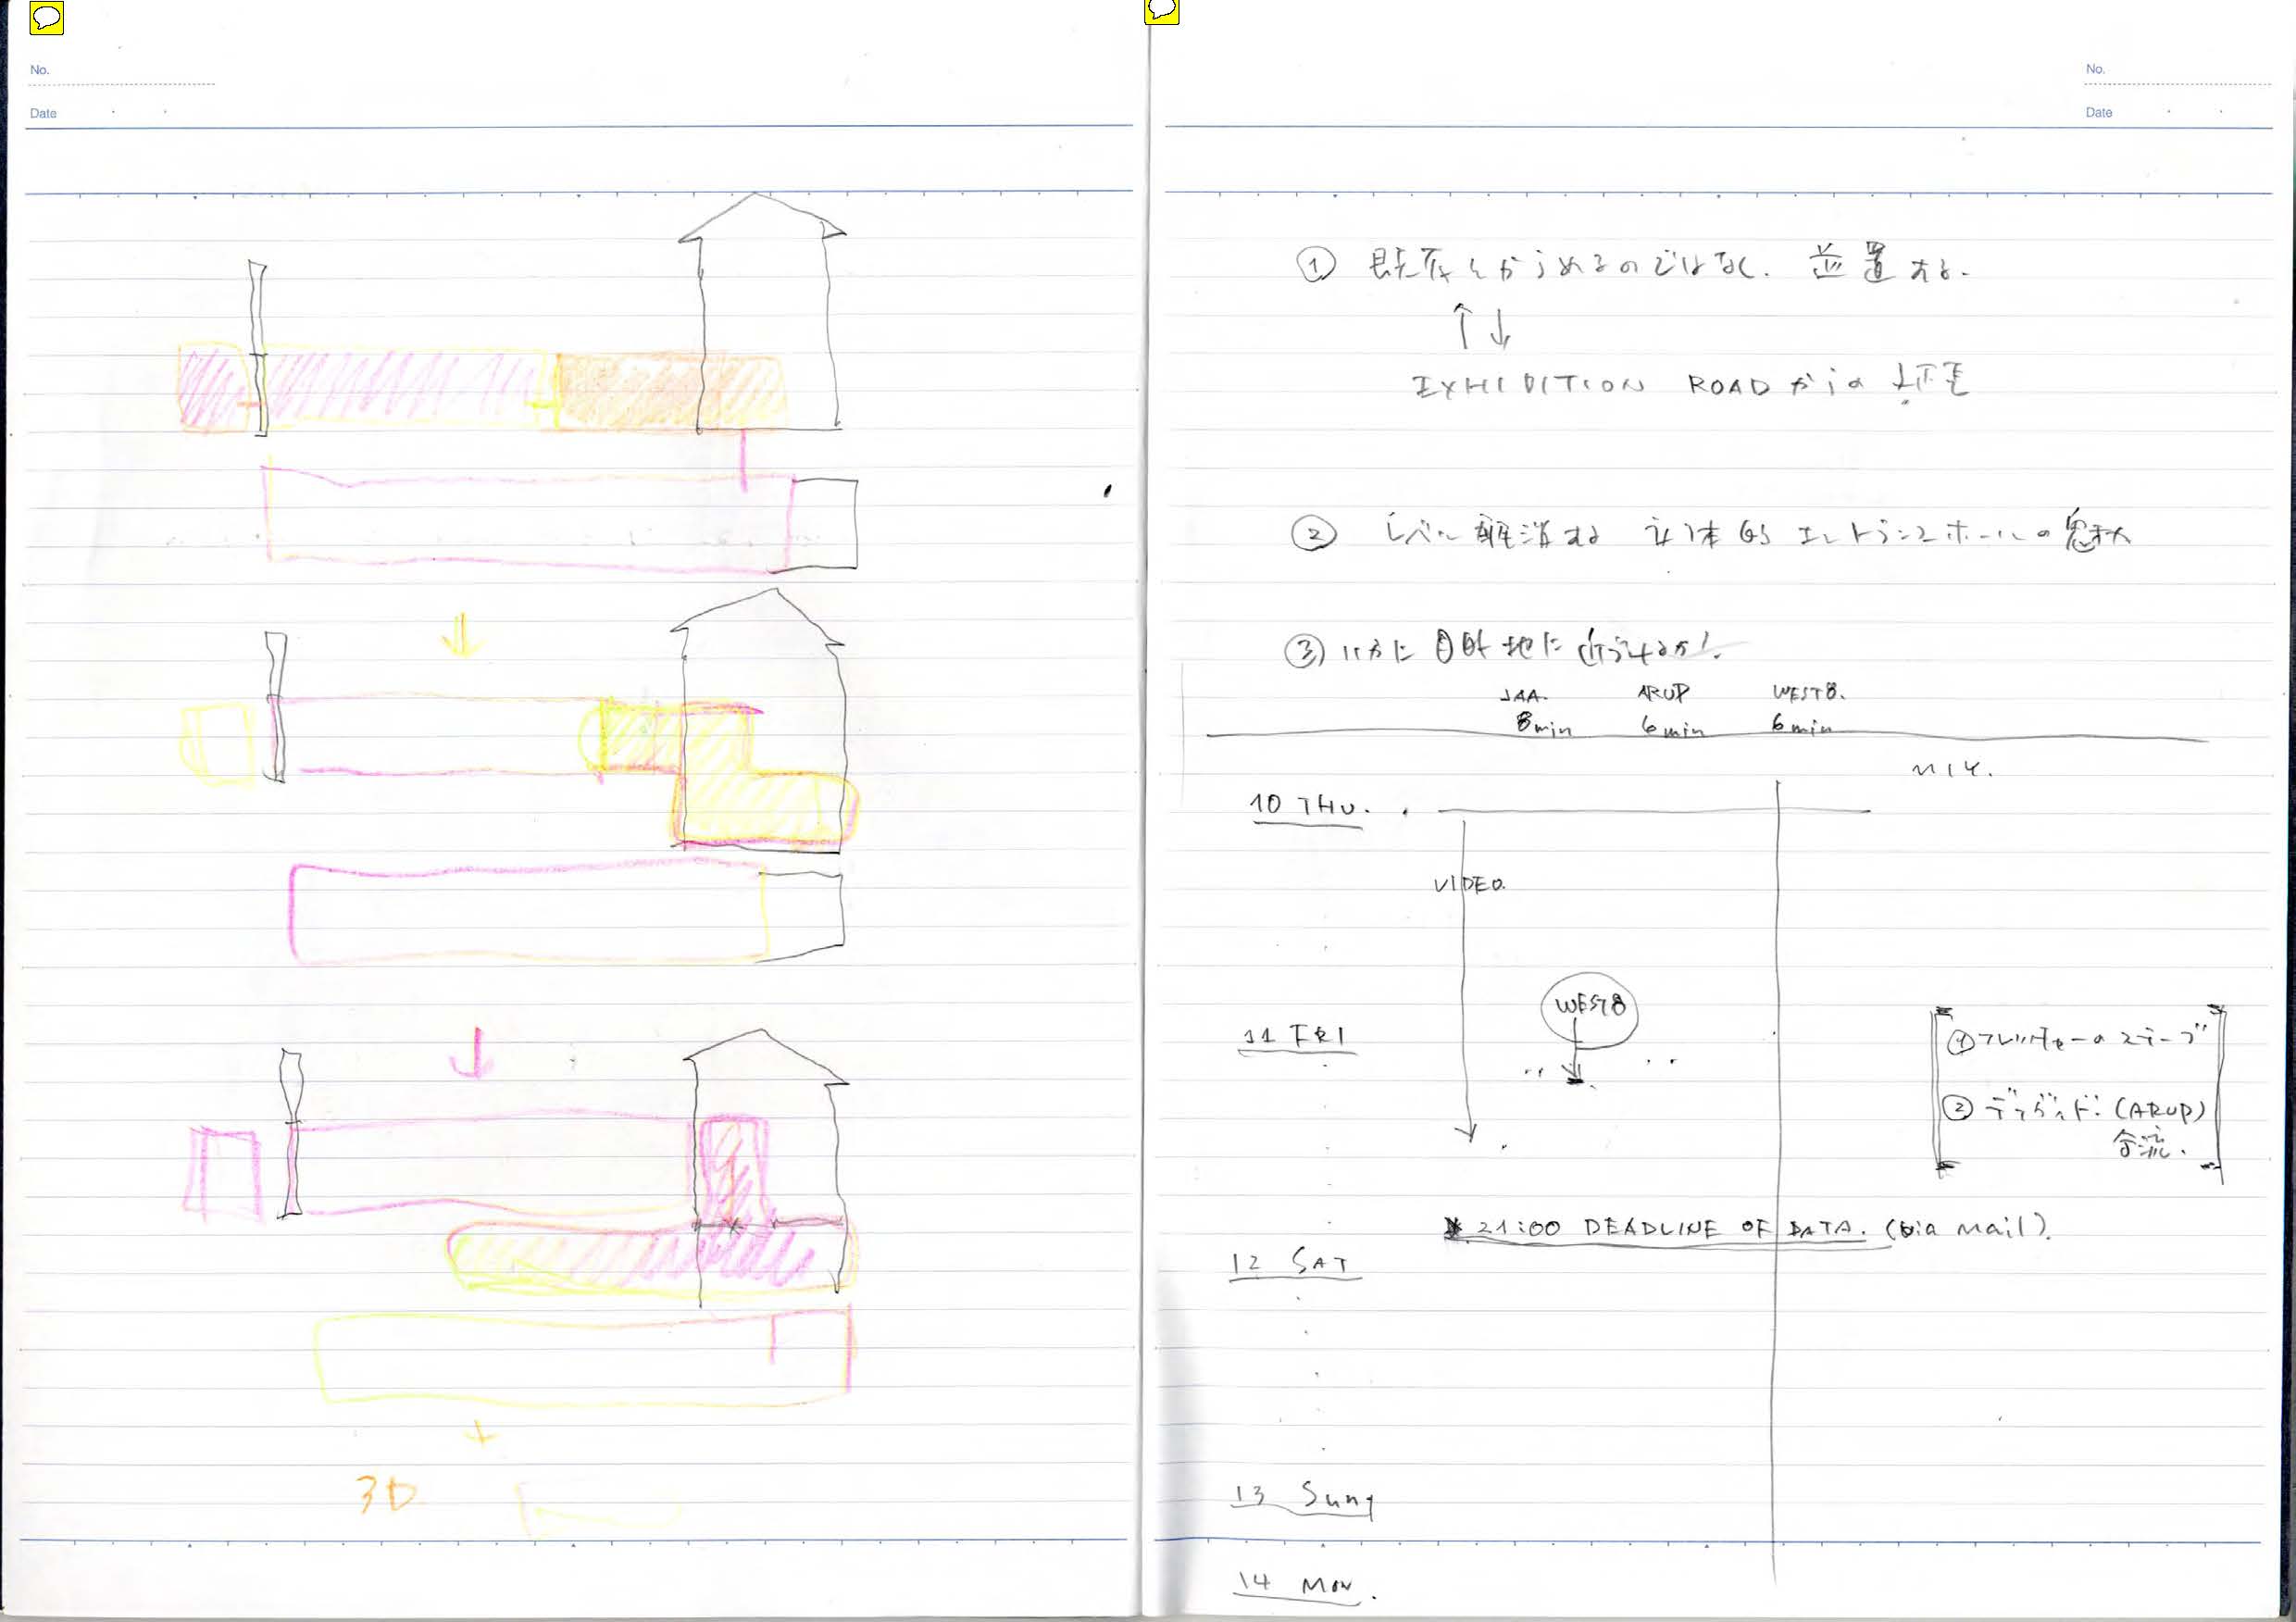 No.
Date
3D
No.
Date
① 既存 のではなく. 並置する.
↑↓
EXHIBITION ROAD からの
② レベル解消する 立体的エントランスホールの
③ いかに目的地に
JAA. ARUP WEST8.
8min 6min 6min
10 THU.
VIDEO.
WEST8
11 FRI
① フレッチャーのステージ
② デイヴィド: (ARUP)
合流.
21:00 DEADLINE OF DATA. (via mail).
12 SAT
13 Sun
14 MON.